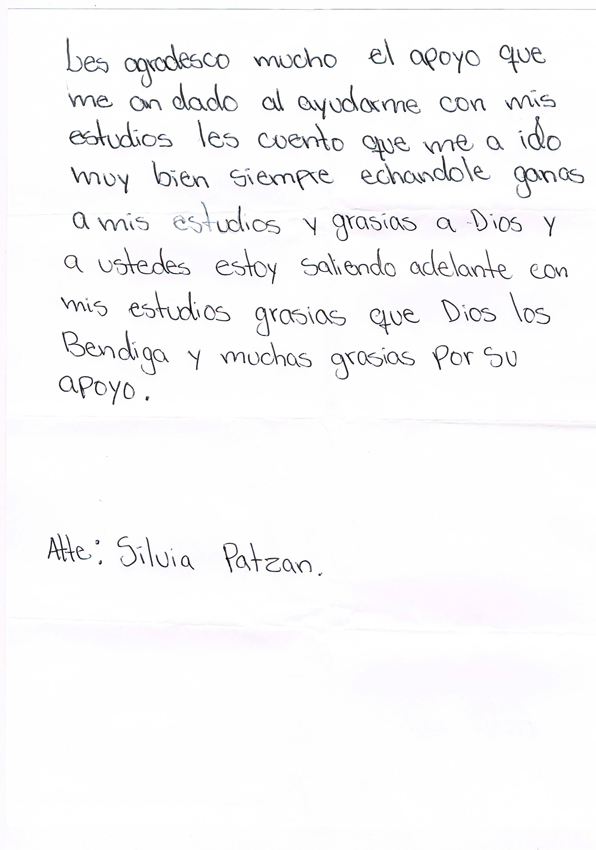 Les agradesco mucho el apoyo que
me an dado al ayudarme con mis
estudios les cuento que me a ido
muy bien siempre echandole ganas
a mis estudios y grasias a Dios y
a ustedes estoy saliendo adelante con
mis estudios grasias que Dios los
Bendiga y muchas grasias por su
apoyo.
Atte: Silvia Patzan.